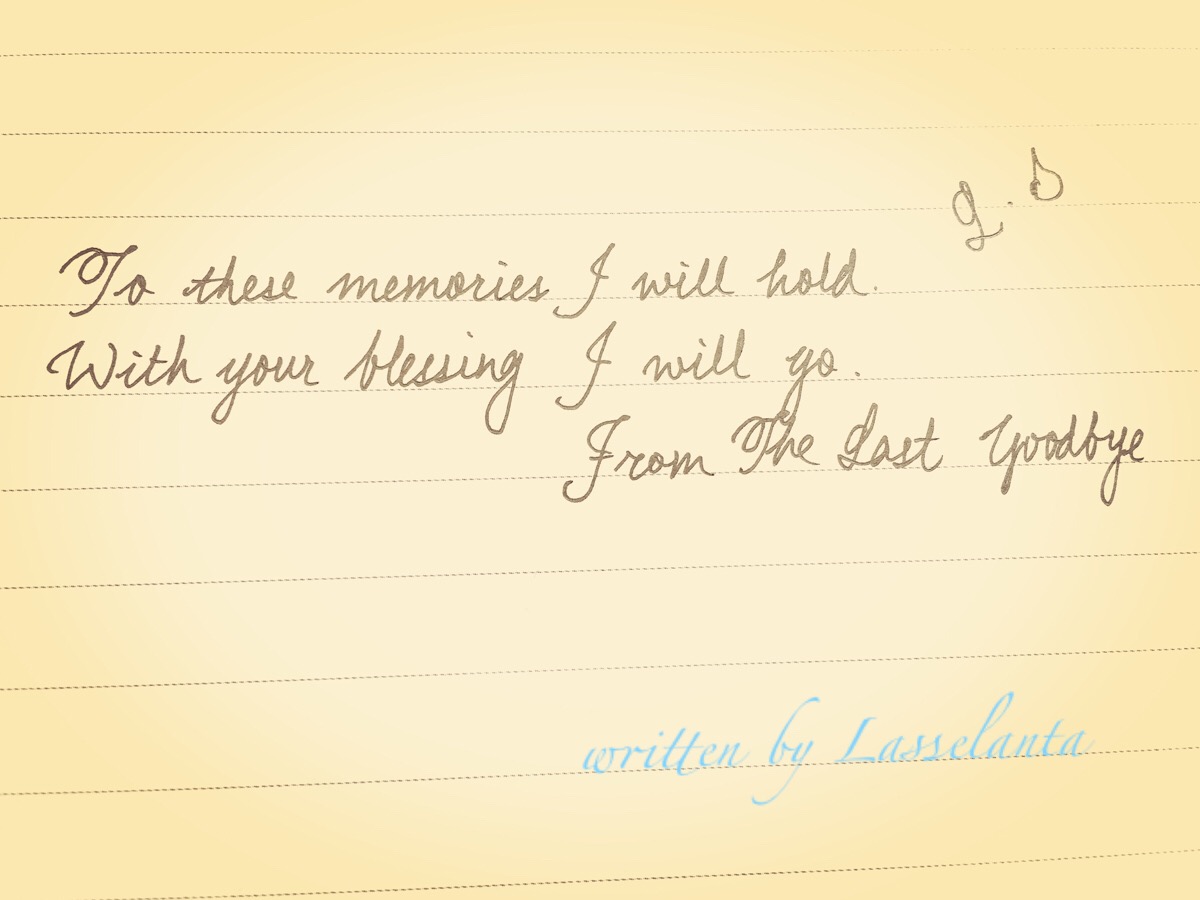 To these memories I will hold.
With your blessing I will go.
From The Last Goodbye
written by Lasselanta